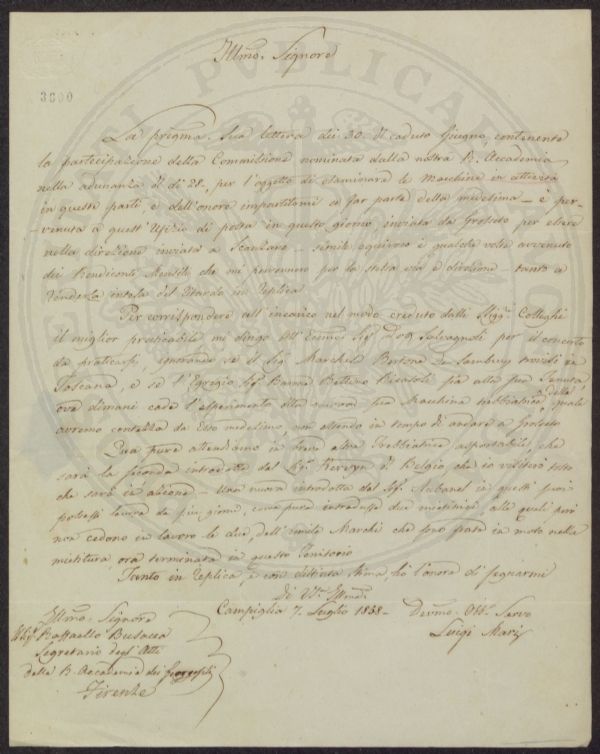 Illmo. Signore
3600
La pregma. Sua lettera dei 30. del caduto Giugno, contenente
la partecipazione della Commissione nominata dalla nostra R. Accademia
nella adunanza del dì 28., per l'oggetto di esaminare le Macchine in attività
in queste parti e dell'onore impartitomi di far parte della medesima, è per-
venuta a quest'Ufizio di posta in questo giorno inviata da Grosseto per essere
nella direzione inviata a Scansano simile equivoco è qualche volta avvenuto
dei Rendiconti Mensili che mi pervennero per la stessa via e direzione tanto a
renderla intesa del ritardo in replica
Per corrispondere all'incarico nel modo creduto dalli Sigg. Colleghi
il miglior praticabile mi dirigo all' Sig. Salvagnoli per il concerto
da praticarsi, ignorando se il Sig. Marchese Bertone de Sambuy trovisi in
Toscana, e se l'Egregio Sig. Barone Bettino Ricasoli sia alla sua Tenuta
ove dimani cade l'esperimento della nuova sua Macchina trebbiatrice, della quale
avremo contezza da Esso medesimo, non essendo in tempo di andare a Grosseto
Qua pure attendiamo in breve altra Trebbiatrice asportabile, che
sarà la seconda introdotta dal Sig. del Belgio, che io visiterò tosto
che sarà in azione Una nuova introdotta dal Sig. Aubanel in questi suoi
possessi lavora da più giorni, come pure introdusse due mietitrici alle quali però
non cedono in lavoro le due dell'umile Marchi che sono state in moto nella
mietitura, ora terminata in questo Territorio
Tanto in replica, e con distinta stima, ho l'onore di segnarmi
Di V.S. Illma.
Campiglia 7. Luglio 1858
Devmo. Obb. Servo
Luigi Mari
Illmo. Signore
Raffaello Busacca
Segretario degli Atti
della R. Accademia dei Georgofili
Firenze